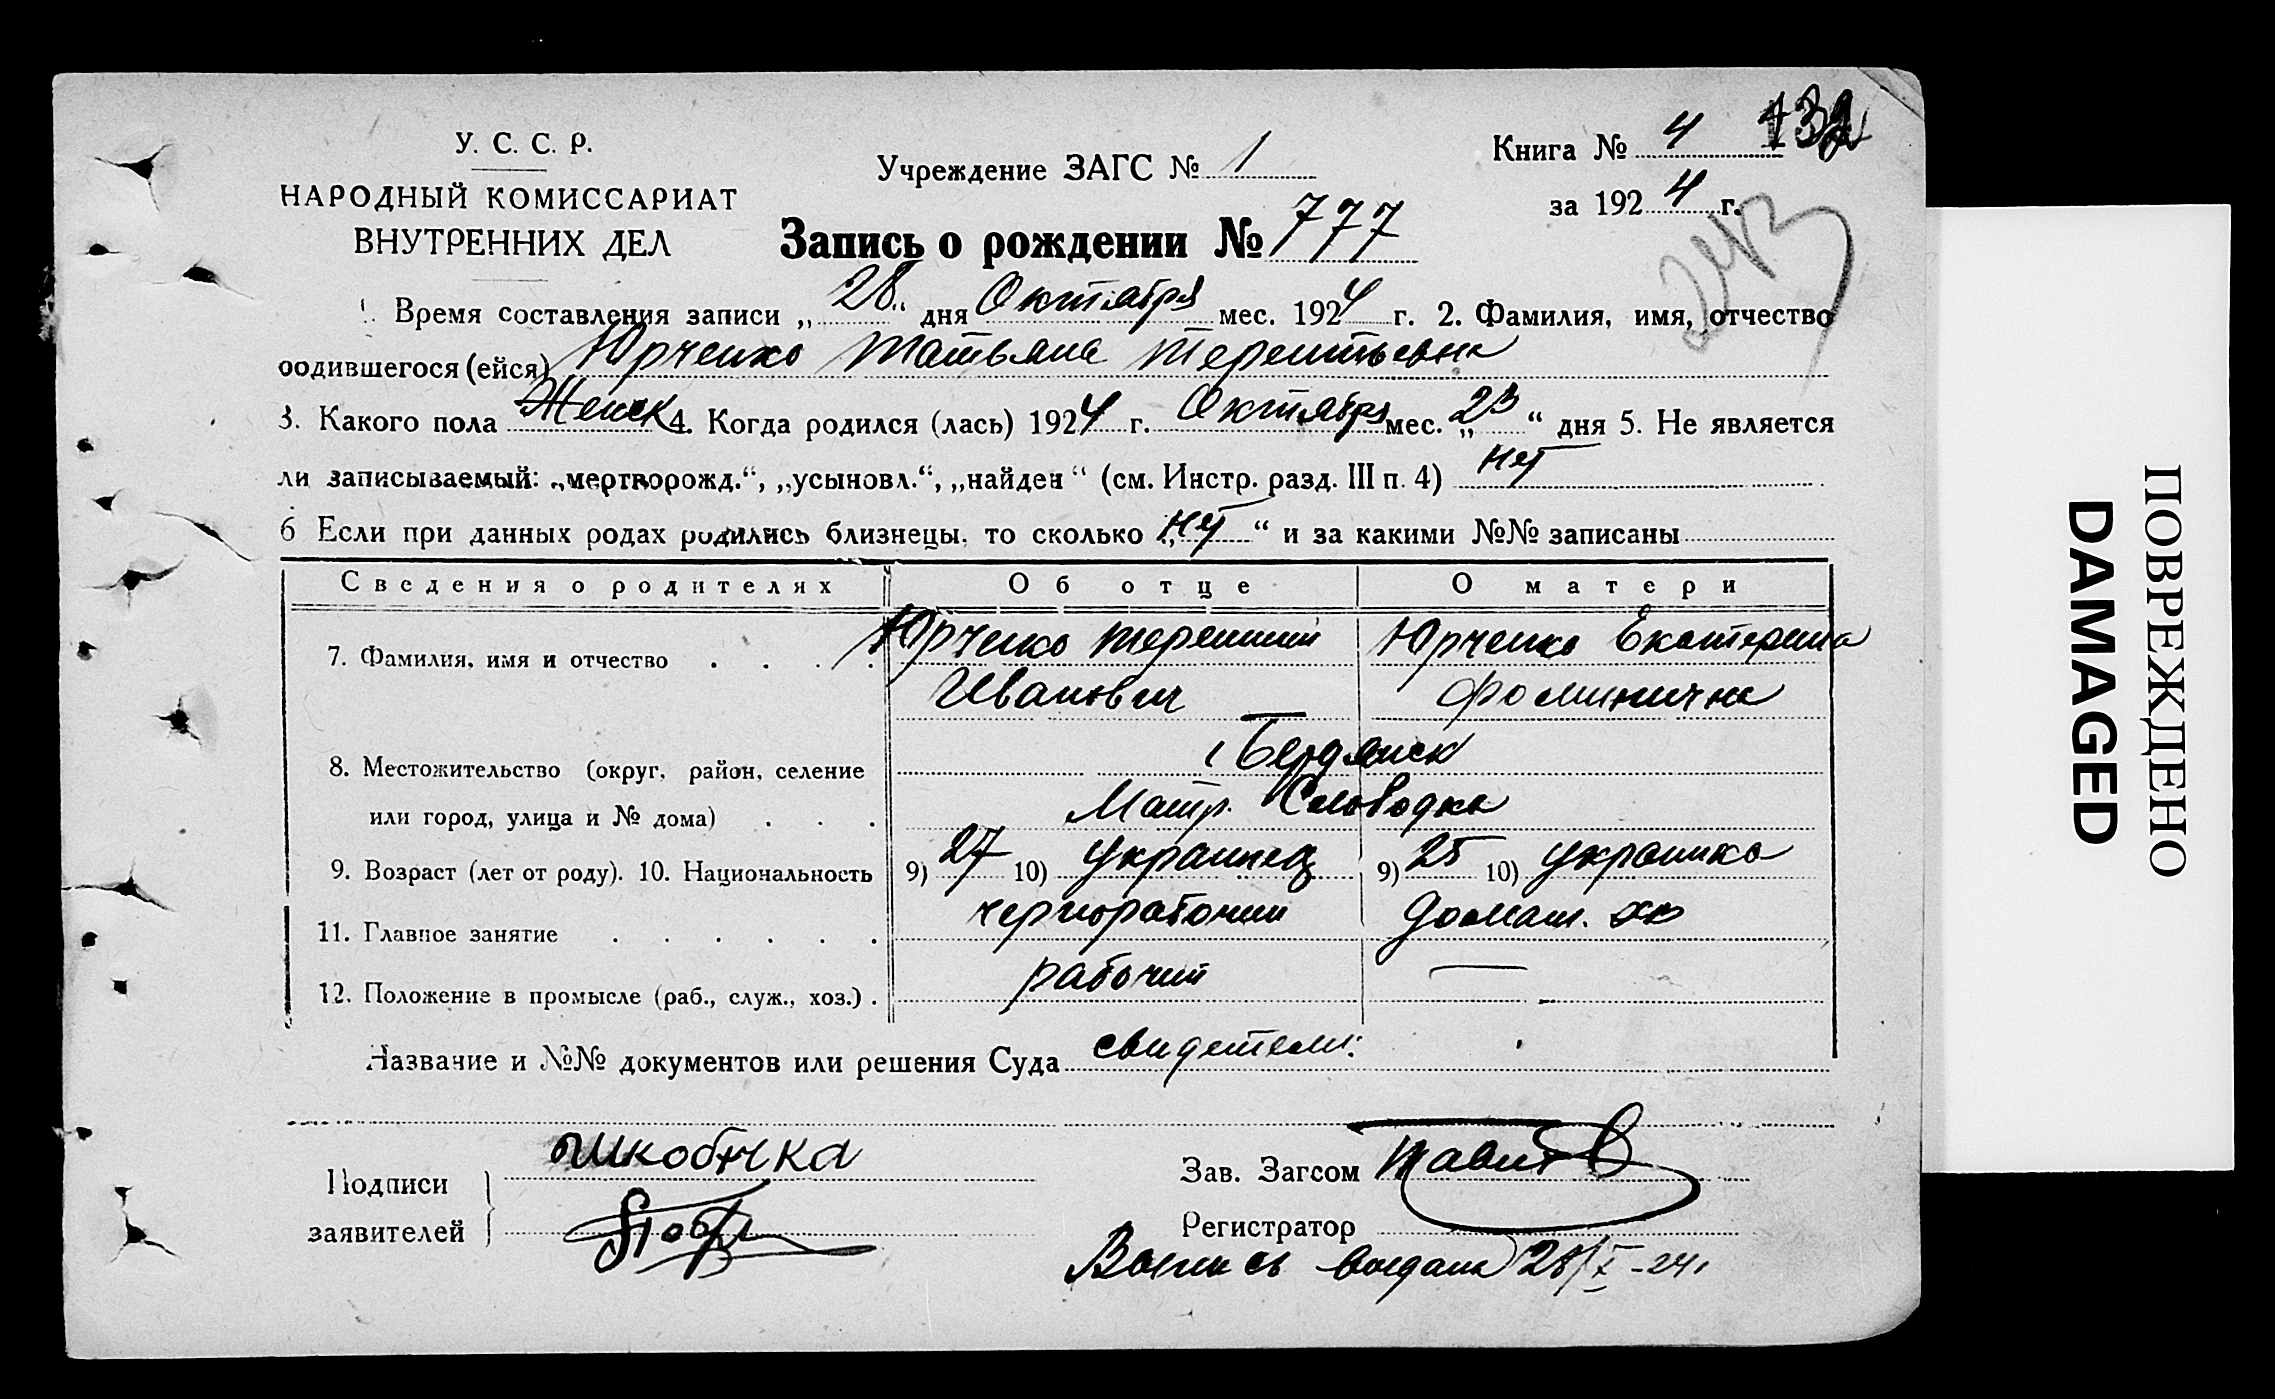 У. С. С. Р.
НАРОДНЫЙ КОМИССАРИАТ
ВНУТРЕННИХ ДЕЛ
Учреждение ЗАГС № 1
Книга № 4 132
за 1924 г.
Запись о рождении № 777
1. Время составления записи „28“ дня Октября мес. 1924 г. 2. Фамилия, имя, отчество
родившегося (ейся) Юрченко Татьяна Терентьевна
3. Какого пола Женск 4. Когда родился (лась) 1924 г. Октября мес. „23“ дня 5. Не является
ли записываемый: „мертворожд.“, „усыновл.“, „найден“ (см. Инстр. разд. III п. 4) нет
6 Если при данных родах родились близнецы, то сколько „нет“ и за какими №№ записаны
Сведения о родителях Об отце О матери
7. Фамилия, имя и отчество Юрченко Терентий Юрченко Екатерина
Иванович Фоминична
8. Местожительство (округ, район, селение г Бердянск
или город, улица и № дома) Матр. Слободка
9. Возраст (лет от роду). 10. Национальность 9) 27 10) украинец 9) 25 10) украинка
11. Главное занятие чернорабочий домаш. хо
12. Положение в промысле (раб., служ., хоз.) рабочий —
Название и №№ документов или решения Суда свидетели:
Подписи
заявителей
Шкобичка
Зав. Загсом
Регистратор
Выпись выдана 28/X-24г
ПОВРЕЖДЕНО
DAMAGED